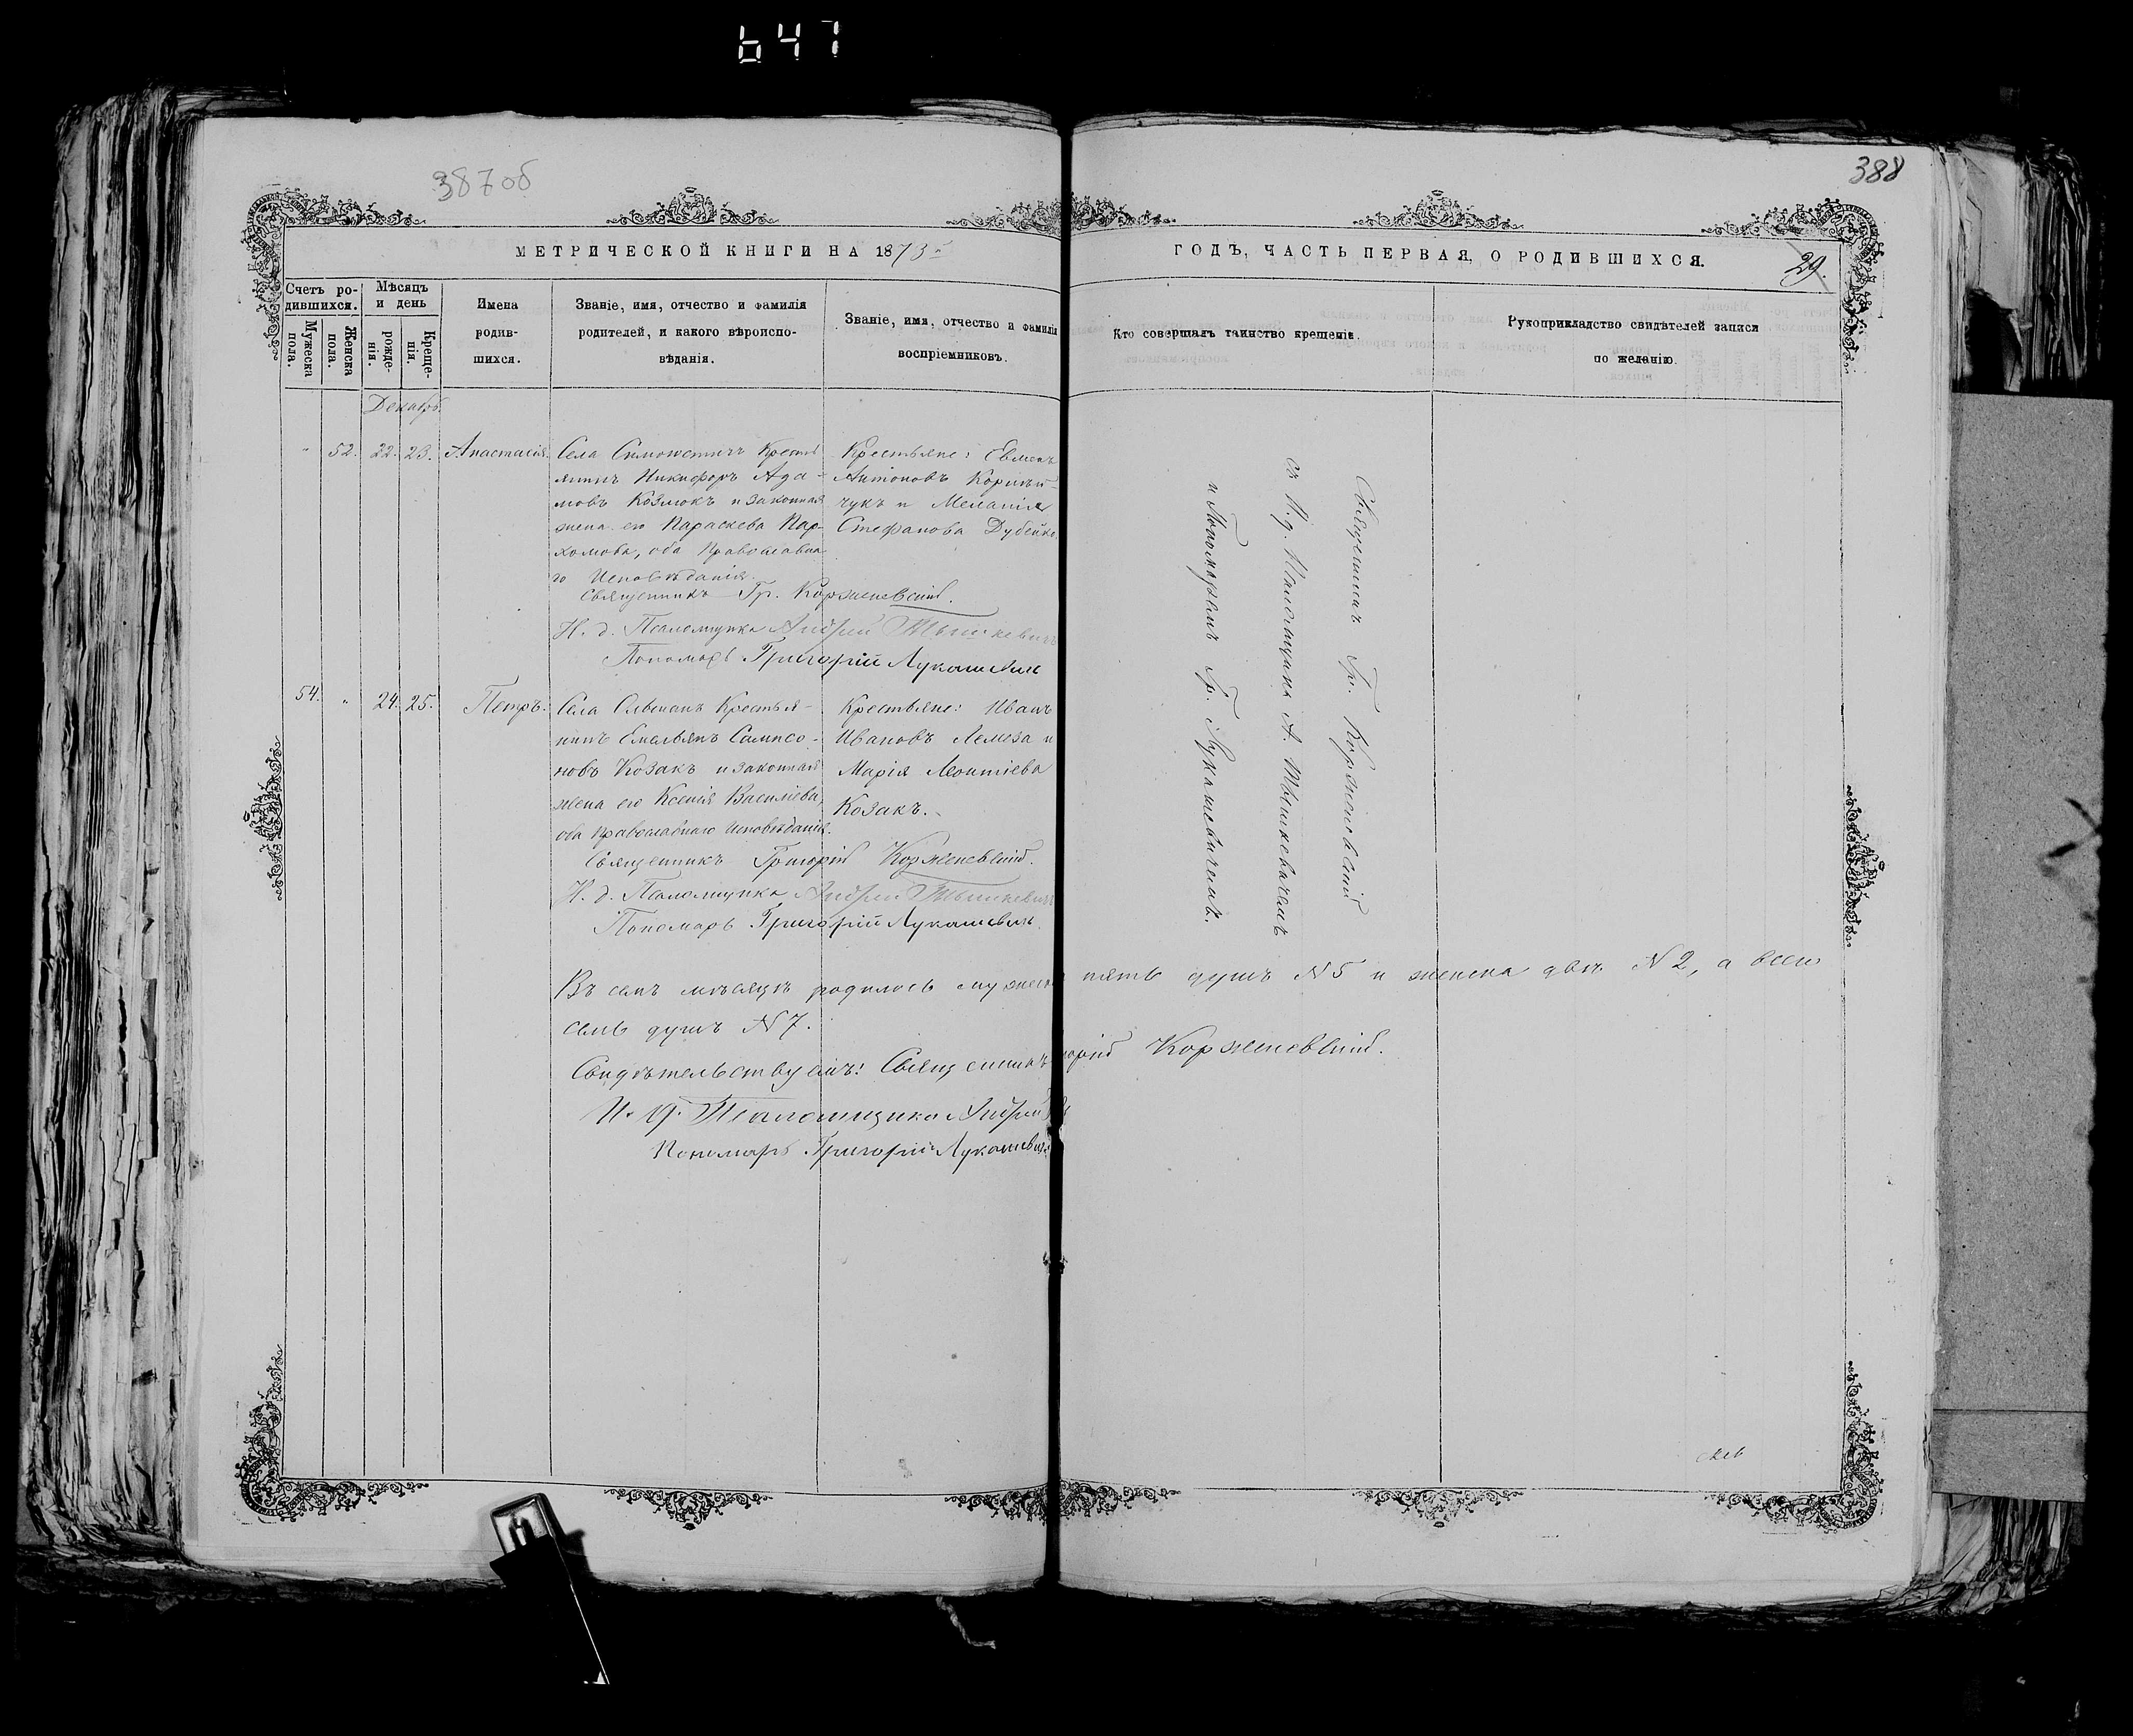 647
387 об
388
МЕТРИЧЕСКОЙ КНИГИ НА 1873й
ГОДЪ, ЧАСТЬ ПЕРВАЯ, О РОДИВШИХСЯ.
29.
Счетъ ро-
дившихся.
Мужеска пола.
Женска пола.
Мѣсяцъ
и день
рожде-
нія.
Креще-
нія.
Имена
родив-
шихся.
Званіе, имя, отчество и фамилія
родителей, и какого вѣроиспо-
вѣданія.
Званіе, имя, отчество и фамилія
воспріемниковъ.
Кто совершалъ таинство крещенія.
Рукоприкладство свидѣтелей записи
по желанію.
Декабрь.
" 52. 22. 23. Анастасія.
Села Симоновичъ Кресть
янинъ Никифоръ Ада-
мовъ Козлюкъ и законная
жена его Параскева Пар-
хомова, оба Православна
го Исповѣданія.
Священникъ Гр. Корженевскій.
И. д. Псаломщика Андрей Тышкевичъ
Пономарь Григорій Лукашевичъ
Крестьяне:
Антоновъ Корнѣй-
чукъ и Меланія
Стефанова
54. " 24. 25. Петръ.
Села Крестья-
нинъ Емельянъ Сампсо-
новъ Козакъ и законная
жена его Ксенія Василіева,
оба Православнаго Исповѣданія.
Священникъ Григорій Корженевскій.
И. д. Псаломщика Андрей Тышкевичъ
Пономарь Григорій Лукашевичъ.
Крестьяне: Иванъ
Ивановъ Лемеза и
Марія Леонтіева
Козакъ.
Священникъ Гр. Корженевскій
съ И. д. Псаломщика А. Тышкевичемъ
и Пономаремъ Гр. Лукашевичемъ.
Въ семъ мѣсяцѣ родилось мужеска пять душъ N 5 и женска двѣ N 2, а всего
семь душъ N 7.
Свидѣтельствуемъ: Священникъ Корженевскій.
И. д. Псаломщика Андрей
Пономарь Григорій Лукашевичъ